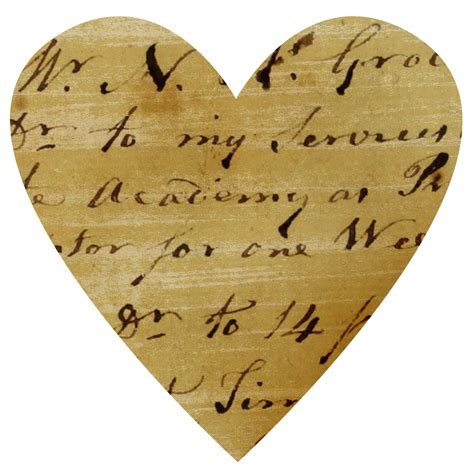 Mr. N. Gro
Dr to my Services
te Academy as Pr
ptor for one We
Dr to 14
Tim